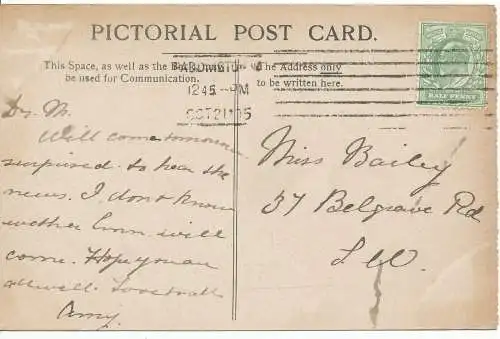 PICTORIAL POST CARD.
This Space, as well as the Back, may
be used for Communication.
The Address only
to be written here.
PADDINGTON W
12 45 PM
OCT 21 05
HALF PENNY
Dr. M.
Will come tomorrow
surprised to hear the
news. I don't know
wether will
come. Hope you are
all well. Love to all
Amy.
Miss Bailey
37 Belgrave Rd
S.W.